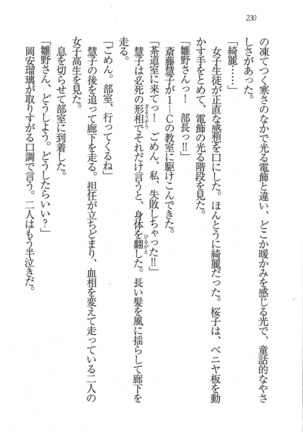 230
の凍てつく寒さのなかで光る電飾と違い、どこか暖かみを感じる光で、童話的なやさ
しさがあった。
「綺麗……」
女子生徒が正直な感想を口にした。ほんとうに綺麗だった。桜子は、ベニヤ板を動
かす手をとめて、電飾の光る階段を見た。
斎藤慧子が1―Cの教室に駆けこんできた。
「雛野さんっ!! 部長っ!!
「茶道室に来てっ! ごめん、私、失敗しちゃった!!」
慧子は必死の形相でそれだけ言うと、身体を翻した。長い髪を風に揺らして廊下を
走る。
「ごめん。部室、行ってくるね」
慧子の後を追って廊下を走る。担任が立ちどまり、血相を変えて走っている二人の
女子高生を見た。
息を切らせて部室に到着した。
「雛野さん、どうしよう。どうしたらいい?」
岡安瑠璃が取りすがる口調で言う。二人はもう半泣きだ。